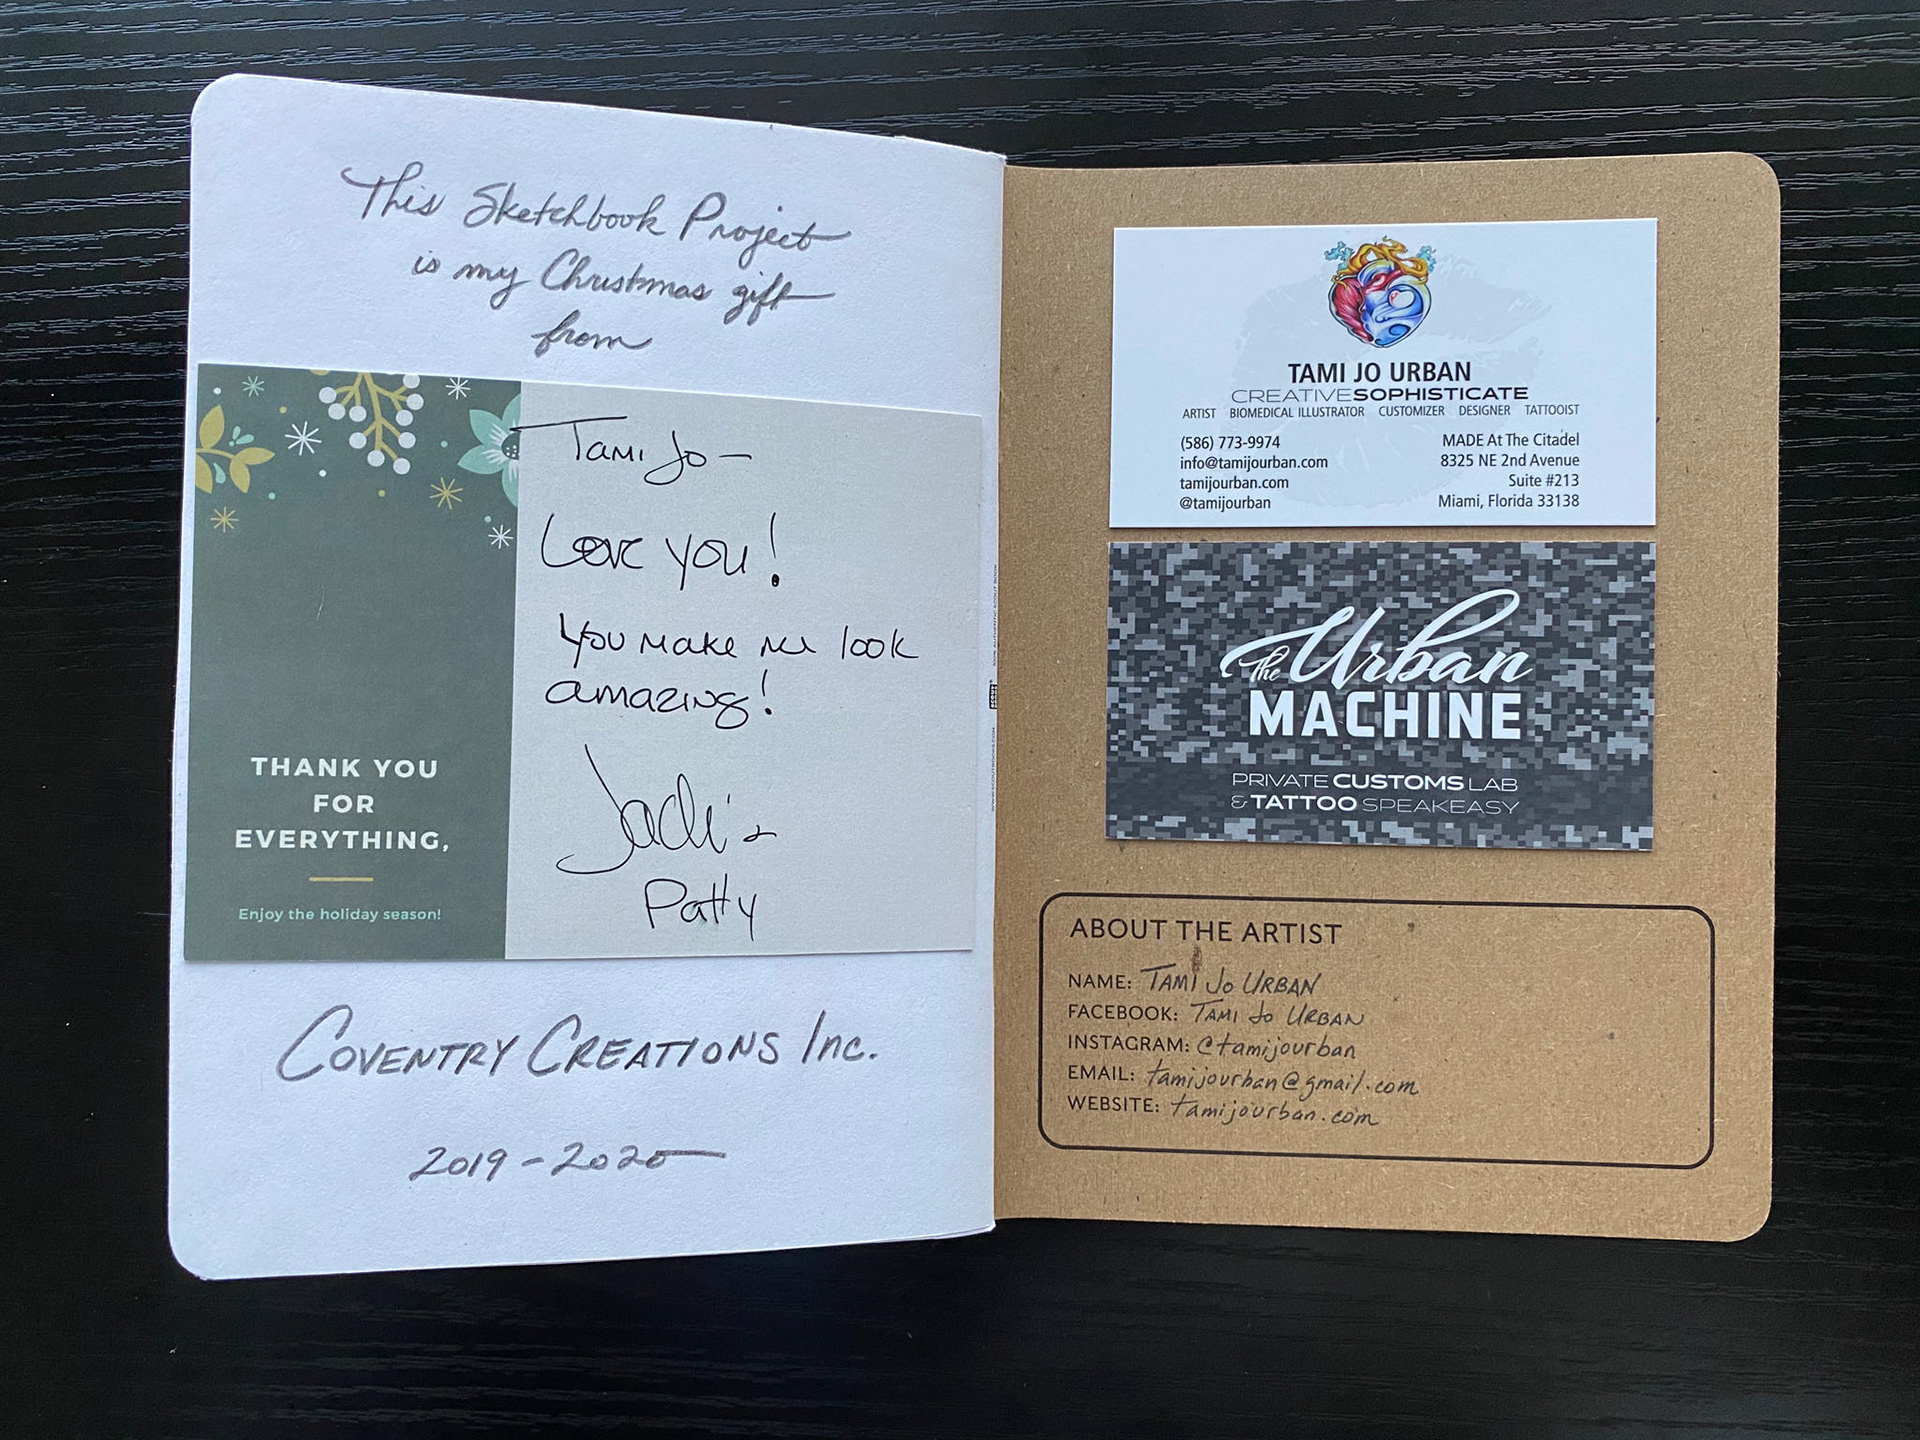 This Sketchbook Project
is my Christmas gift
from
THANK YOU
FOR
EVERYTHING,
Enjoy the holiday season!
Tami Jo —
Love you!
You make me look
amazing!
Jacki &
Patty
COVENTRY CREATIONS Inc.
2019 - 2020
TAMI JO URBAN
CREATIVESOPHISTICATE
ARTIST BIOMEDICAL ILLUSTRATOR CUSTOMIZER DESIGNER TATTOOIST
(586) 773-9974
info@tamijourban.com
tamijourban.com
@tamijourban
MADE At The Citadel
8325 NE 2nd Avenue
Suite #213
Miami, Florida 33138
The Urban
MACHINE
PRIVATE CUSTOMS LAB
& TATTOO SPEAKEASY
ABOUT THE ARTIST
NAME: TAMI JO URBAN
FACEBOOK: TAMI JO URBAN
INSTAGRAM: @tamijourban
EMAIL: tamijourban@gmail.com
WEBSITE: tamijourban.com